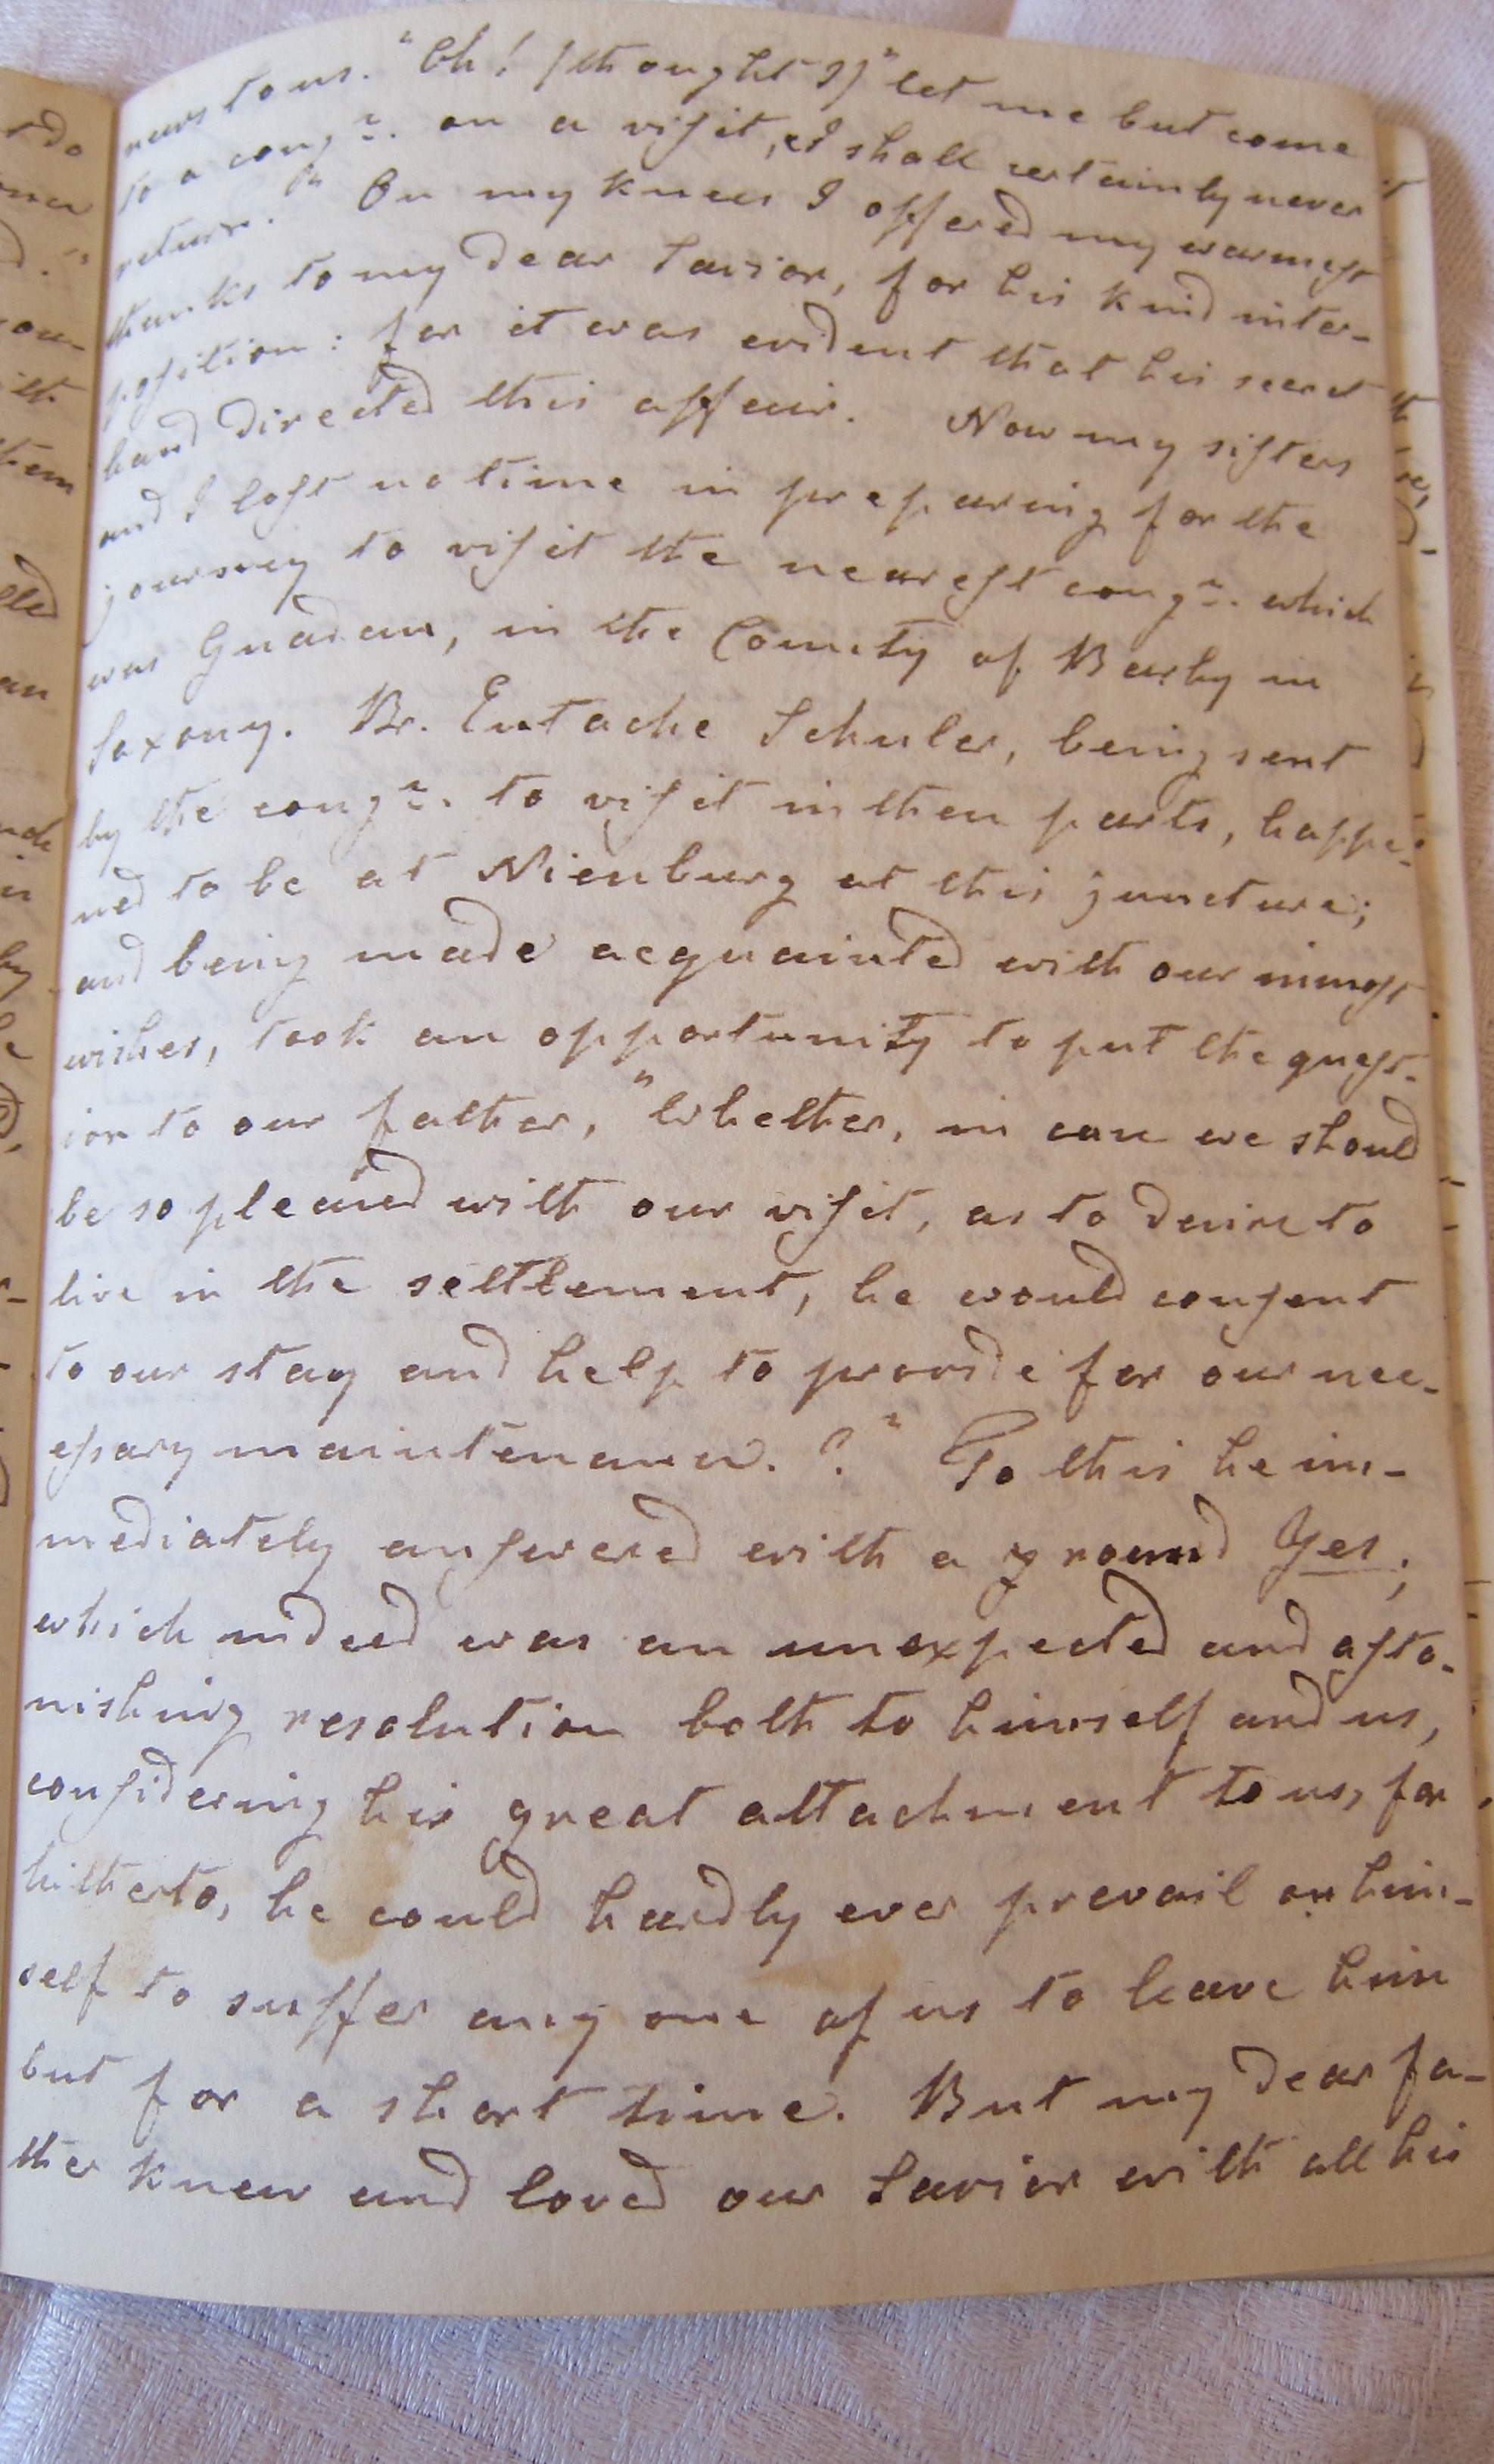 news to us. "Oh! (thought I)" let me but come
to a congn. on a visit, & I shall certainly never
return." On my knees I offered my warmest
thanks to my dear Savior, for his kind inter-
position: for it was evident that his secret
hand directed this affair. Now my sisters
and I lost no time in preparing for the
journey to visit the nearest congn. which
was Gnadau, in the County of Barby in
Saxony. Br. Eutache Schuler, being sent
by the congn. to visit in then parts, happe-
ned to be at Nienburg at this juncture;
and being made acquainted with our inmost
wishes, took an opportunity to put the quest-
ion to our father, "Whether, in case we should
be so pleased with our visit, as to desire to
live in the settlement, he would consent
to our stay and help to provide for our nec-
essary maintenance.?" To this he im-
mediately answered with a round Yes;
which indeed was an unexpected and asto-
nishing resolution both to himself and us,
considering his great attachment to us, for
hitherto, he could hardly ever prevail on him-
self to suffer any one of us to leave him
but for a short time. But my dear fa-
ther knew and loved our Savior with all his